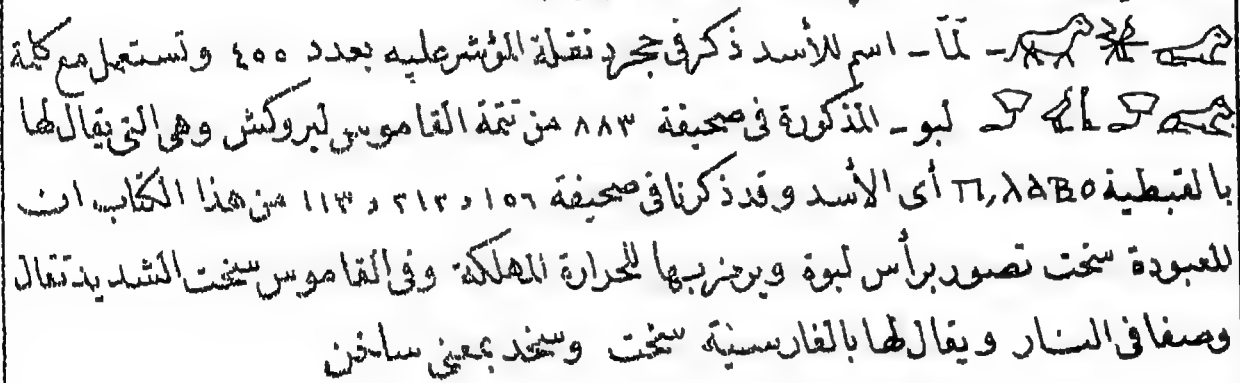 - لمّا - اسم للأسد ذكر فى حجر نقلة المؤشر عليه بعدد ٤٥٥ وتستعمل مع كلة
لبو - المذكورة فى صحيفة ٨٨٣ من تتمة القاموس لبروكش وهى التى يقال لها
بالقبطية ⲡⲓⲗⲁⲃⲟ أى الأسد وقد ذكرنا فى صحيفة ١٥٦ و ٢١٣ و ١١٣ من هذا الكتاب ان
المعبودة سخت تصور برأس لبوة ويرمز بها للحرارة المهلكة وفى القاموس سخت الشديد تقال
وصفا فى النار ويقال لها بالفارسية سخت وسخد بمعنى ساخن